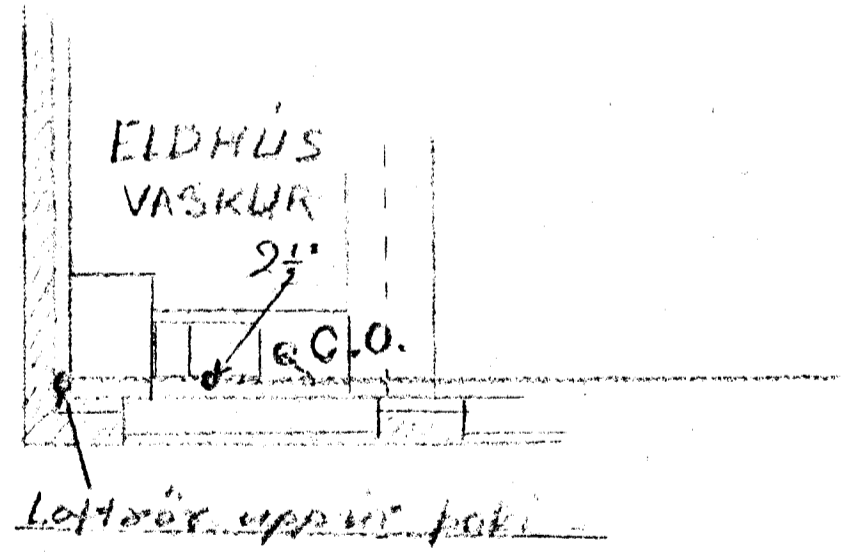 ELDHÚS
VASKUR
2½"
C.O.
Loftrör uppúr þaki